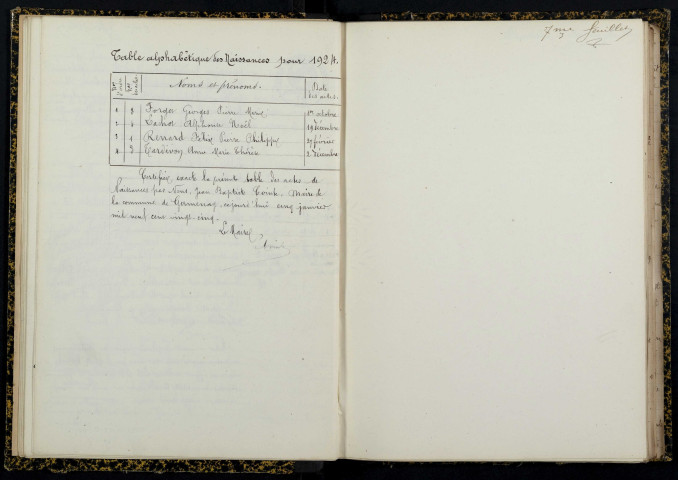 7me feuillet
Table alphabétique des Naissances pour 1924.
Nos Nos Noms et prénoms. Date des actes.
1 3 Forget Georges Pierre Marie 1er octobre
2 4 Lahot Alphonse Noël 19 décembre
3 1 Renard Félix Pierre Philippe 27 février
4 Anne Marie Thérèse 2 décembre
Certifiée exacte la présente table des actes de
Naissances par Nous, Jean Baptiste Maire de
la commune de cejourd'hui cinq janvier
mil neuf cent vingt-cinq.
Le Maire,